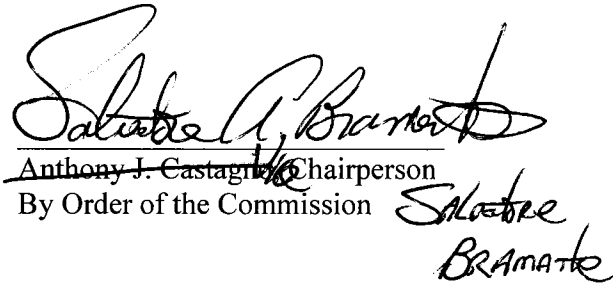 Salvatore A. Bramante
Anthony J. Castagno, Chairperson
V/C
By Order of the Commission
SALVATORE
BRAMANTE